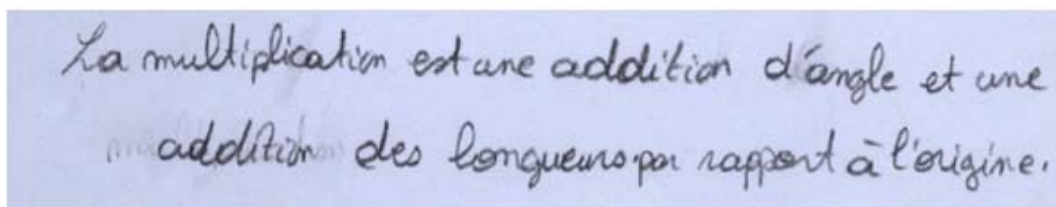 La multiplication est une addition d'angle et une
addition des longueurs par rapport à l'origine.